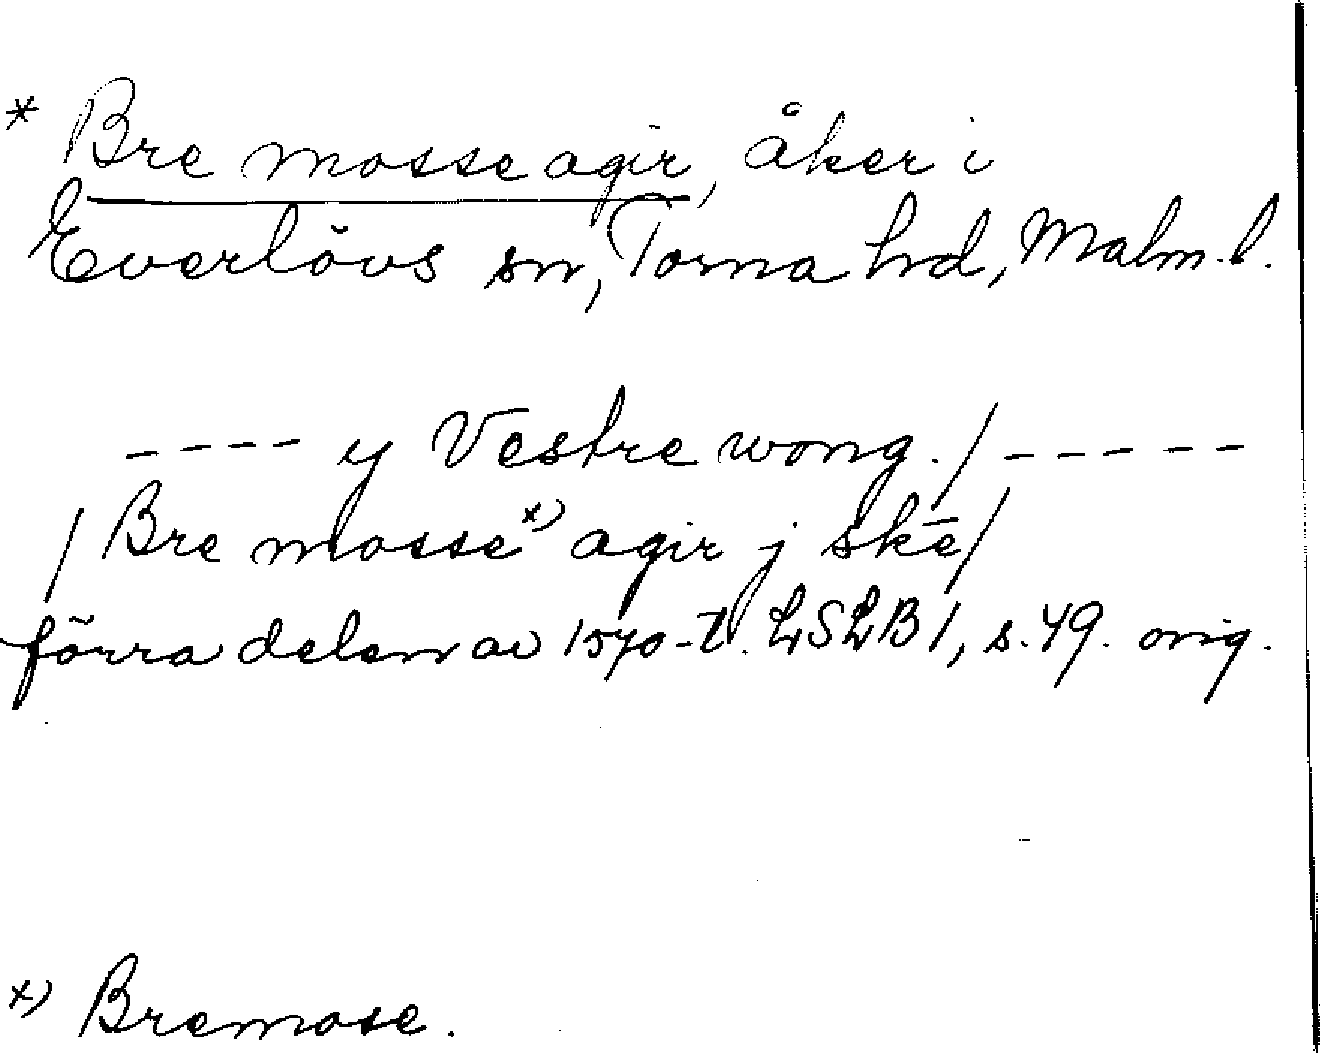 * Bre mosse agir, åker i
Everlövs sn, Torna hrd, Malm. l.
---- y Vestre wong. / -----
/ Bre mosse x) agir j skē /
förra delen av 1570-t. LSLB 1, s. 49. orig.
x) Bremose.